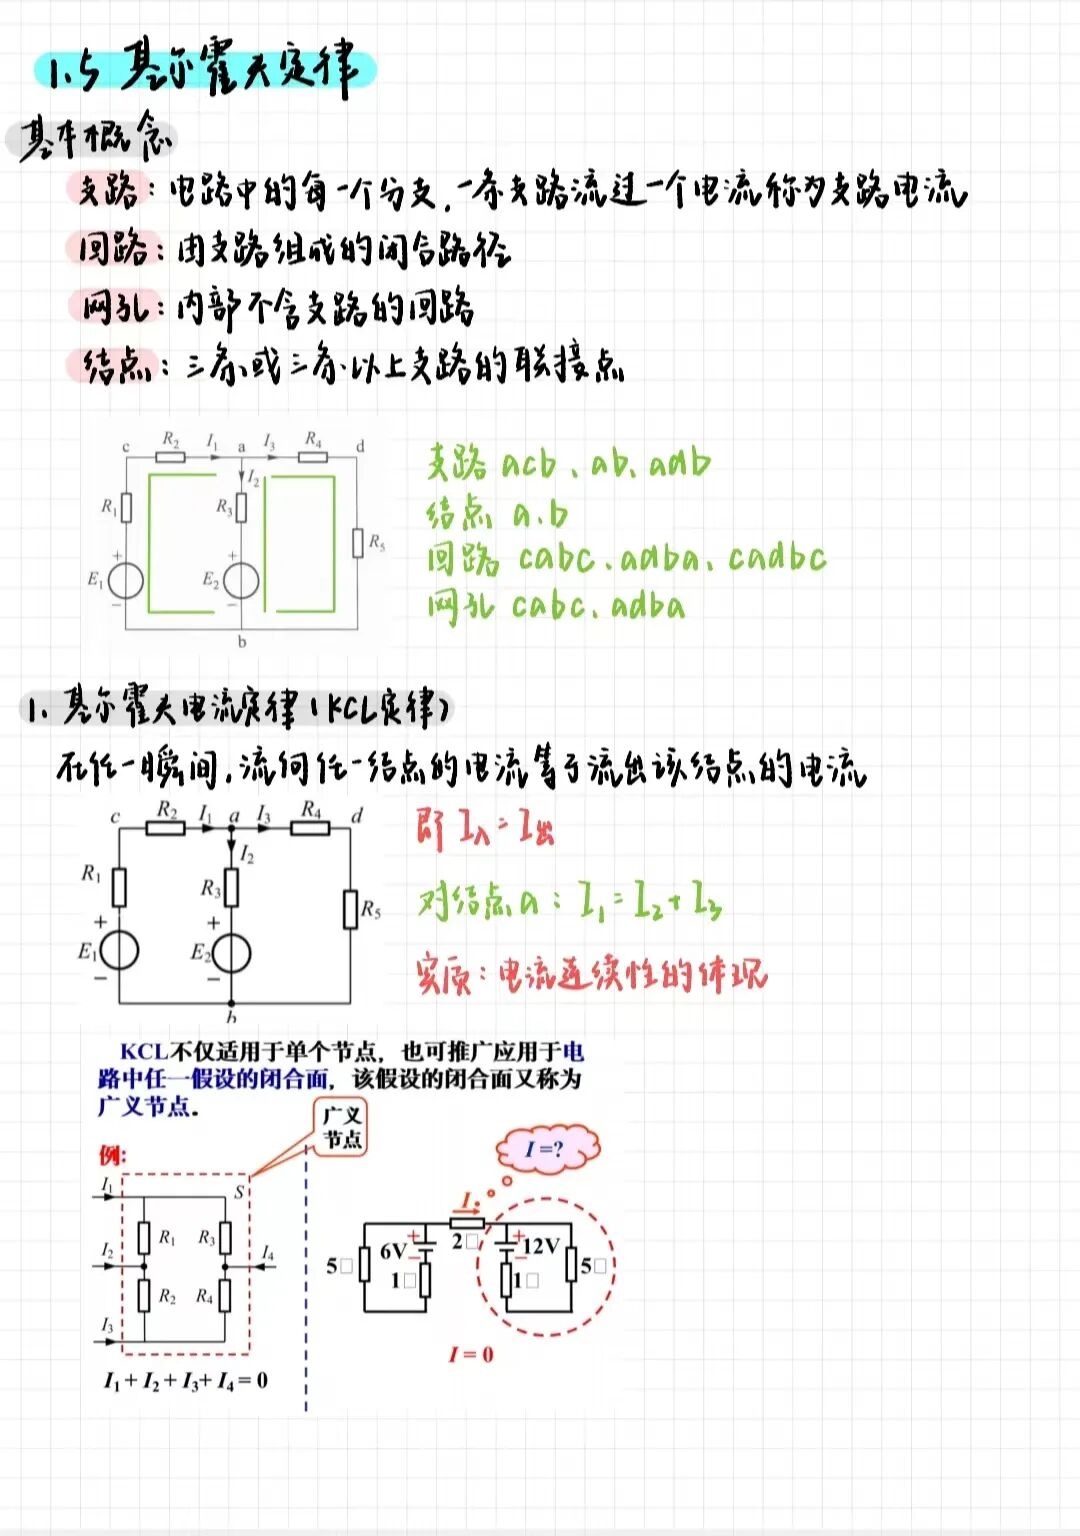 1.5 基尔霍夫定律
基本概念
支路：电路中的每一个分支，一条支路流过一个电流称为支路电流
回路：由支路组成的闭合路径
网孔：内部不含支路的回路
结点：三条或三条以上支路的联接点
c R₂ I₁ a I₃ R₄ d
I₂
R₁ R₃ R₅
+ +
E₁ E₂
− −
b
支路 acb、ab、adb
结点 a、b
回路 cabc、adba、cadbc
网孔 cabc、adba
1、基尔霍夫电流定律（KCL定律）
在任一瞬间，流向任一结点的电流等于流出该结点的电流
c R₂ I₁ a I₃ R₄ d
I₂
R₁ R₃ R₅
+ +
E₁ E₂
− −
b
即 I入=I出
对结点a：I₁=I₂+I₃
实质：电流连续性的体现
KCL不仅适用于单个节点，也可推广应用于电
路中任一假设的闭合面，该假设的闭合面又称为
广义节点.
广义
节点
例:
I₁ S
R₁ R₃
I₂ I₄
R₂ R₄
I₃
I₁+I₂+I₃+I₄=0
I=?
I
6V + − 2□ + − 12V
5□ 1□ 1□ 5□
I=0